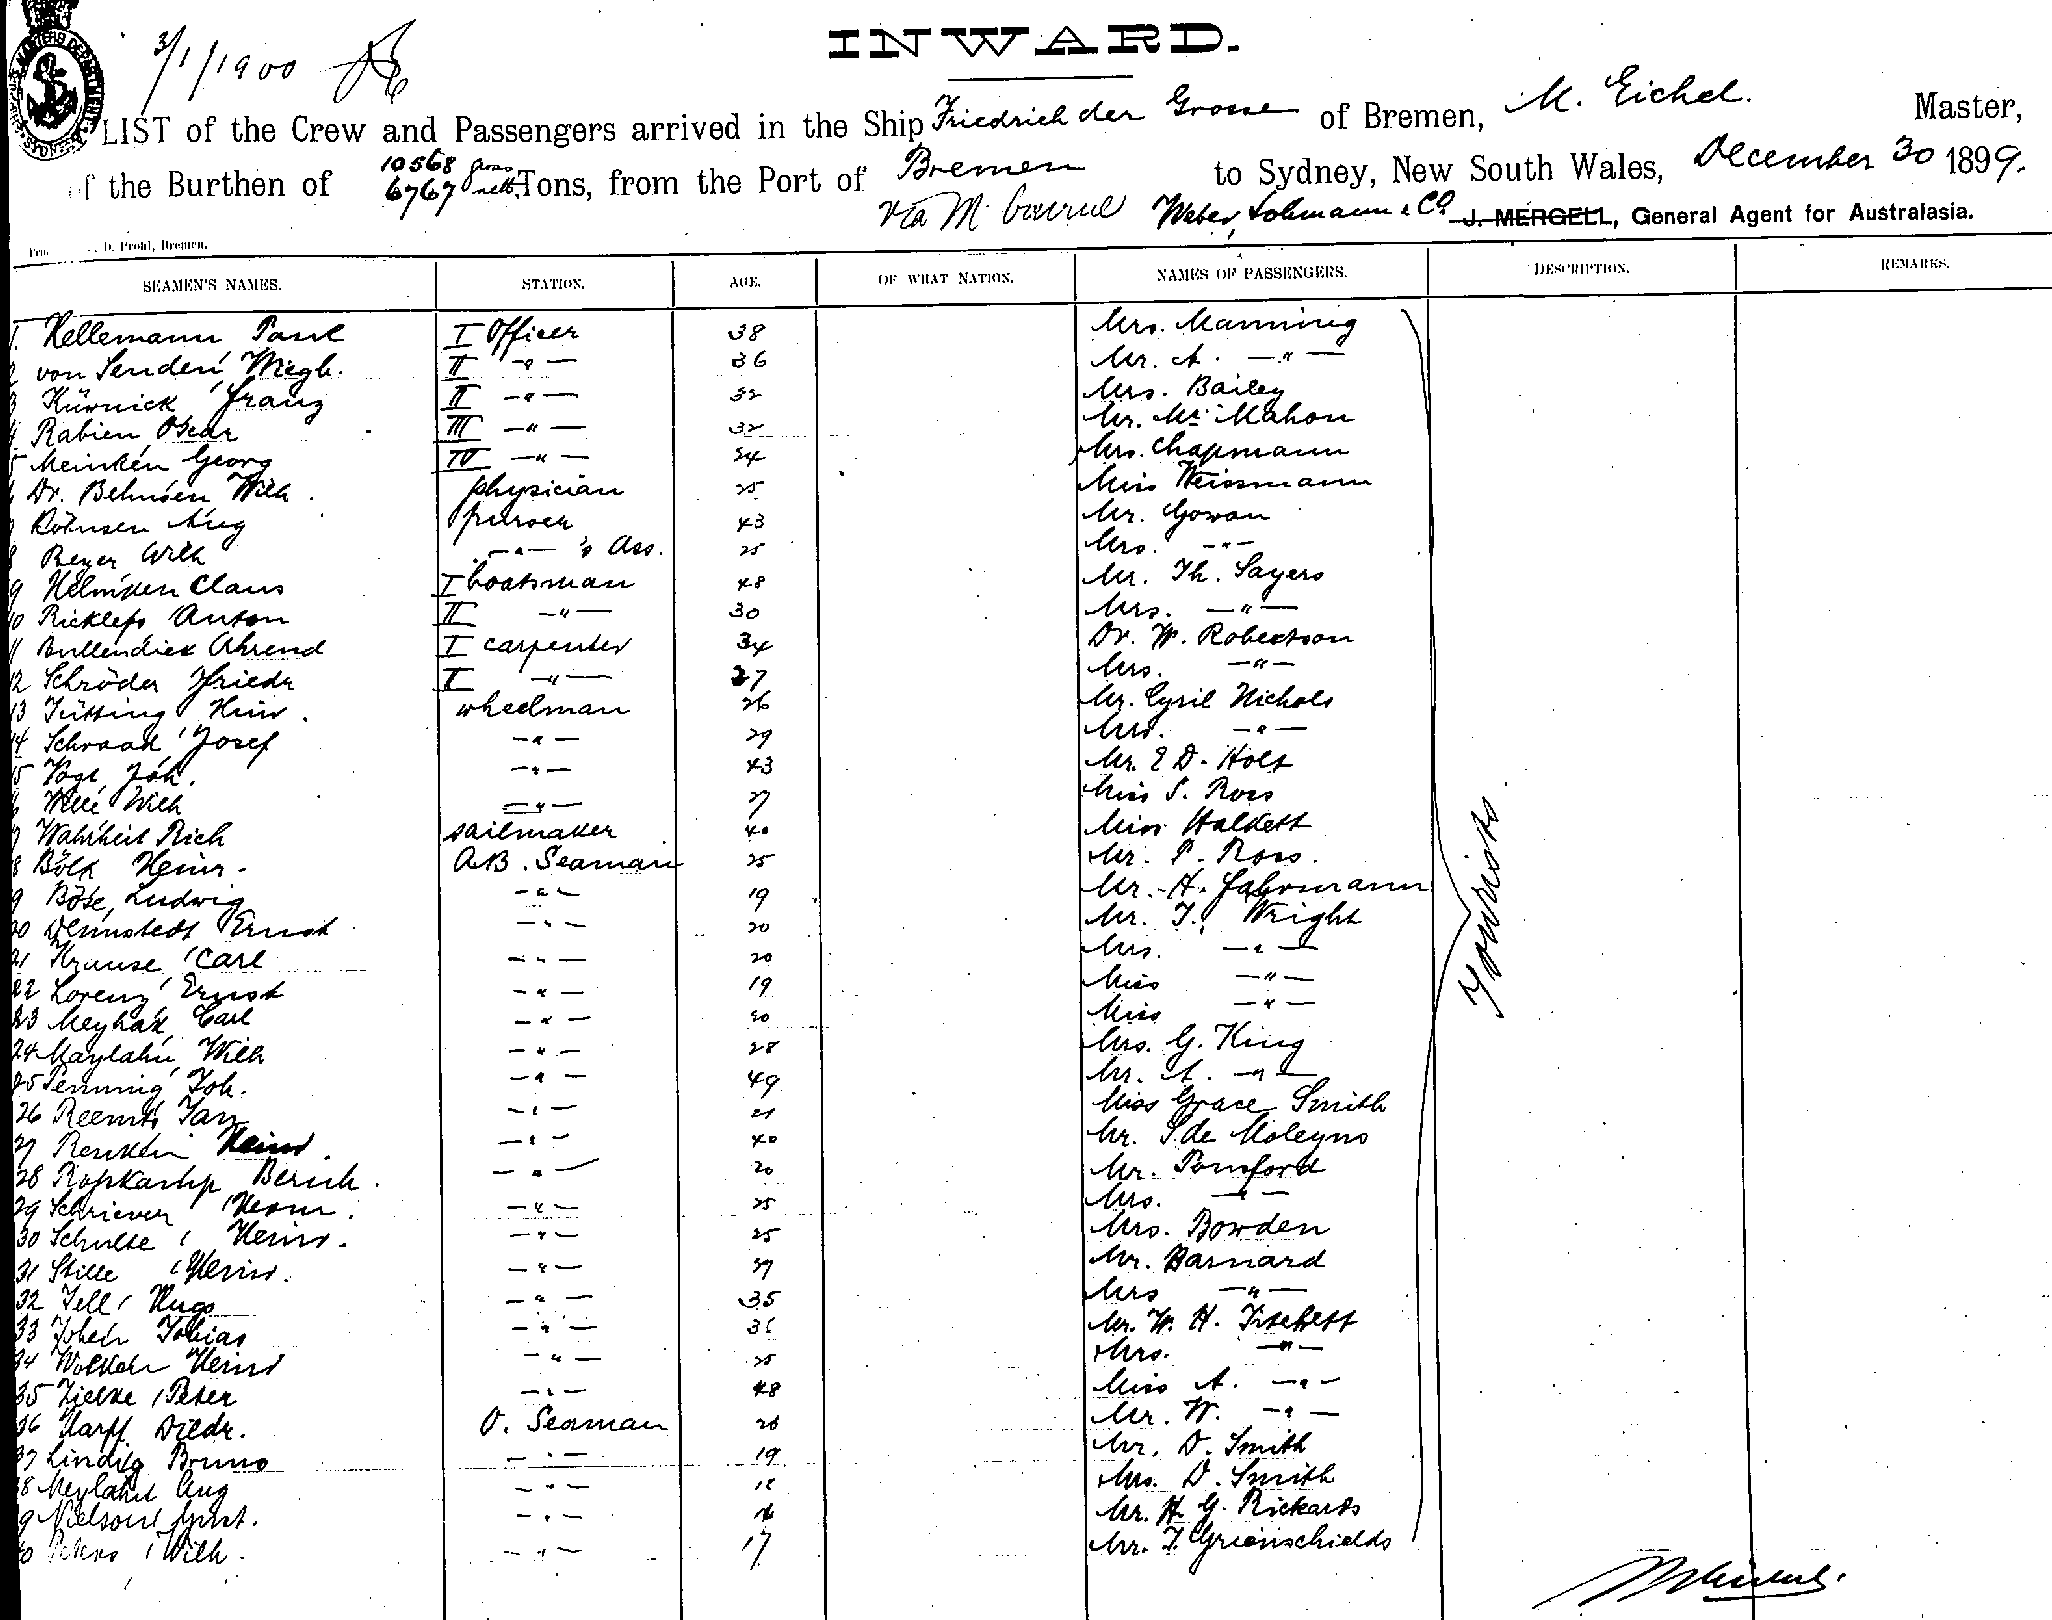 INWARD.
3/1/1900
LIST of the Crew and Passengers arrived in the Ship Friedrich der Grosse of Bremen, M. Eichel. Master,
of the Burthen of 10568 gross 6767 nett Tons, from the Port of Bremen to Sydney, New South Wales, December 30 1899.
via M'bourne Weber, Lohmann & Co. J. MERGELL, General Agent for Australasia.
D. Prohl, Bremen.
SEAMEN'S NAMES. STATION. AGE. OF WHAT NATION. NAMES OF PASSENGERS. DESCRIPTION. REMARKS.
1. Hellemann Paul I Officer 38 Mrs. Manning
2 von Senden, Wiegb. II -"- 36 Mr. A. -"-
3 Kürnick, Franz II -"- 32 Mrs. Bailey
4 Rabien, Oscar III -"- 32 Mr. Mc Mahon
5 Meinken, Georg IV -"- 34 Mrs. Chapmann
6 Dr. Behnsen Wilh. physician 25 Miss Weissmann
7 Röhnsen Aug purser 43 Mr. Gowan
8 Beyer, Wilh -"- 's Ass. 25 Mrs. -"-
9 Helmken Claus I boatsman 48 Mr. Th. Sayers
10 Ricklefs Anton II -"- 30 Mrs. -"-
11 Bullendiek Ahrend I carpenter 34 Dr. W. Robertson
12 Schröder Friedr I -"- 27 Mrs. -"-
13 Tütting, Heinr. wheelman 26 Mr. Cyril Nichols
14 Schraad, Josef -"- 29 Mrs. -"-
15 Vogt, Joh. -"- 43 Mr. E D. Holt
16 Wilh -"- 27 Miss S. Ross
17 Wahrheit Rich sailmaker 40 Miss Halkett
18 Bölk Heinr. A.B. Seaman 25 Mr. P. Ross.
19 Böse, Ludwig -"- 19 Mr. H. Fahrmann
20 Olmstedt Ernst -"- 20 Mr. T. Wright
21 Krause, Carl -"- 20 Mrs. -"-
22 Lorenz, Ernst -"- 19 Miss -"-
23 Meyhak, Carl -"- 20 Miss -"-
24 Maylahn, Wilh -"- 28 Mrs. G. King
25 Penning, Joh. -"- 49 Mr. A. -"-
26 Reemts Jan -"- 21 Miss Grace Smith
27 Renklin Heinr. -"- 40 Mr. S. de Moleyns
28 Ropkamp Bernh. -"- 20 Mr. Ponsford
29 Schriever Herm. -"- 25 Mrs. -"-
30 Schulte, Heinr. -"- 25 Mrs. Bowden
31 Stille, Heinr. -"- 27 Mr. Barnard
32 Tell, Hugo -"- 35 Mrs -"-
33 Tobias -"- 36 Mr. W. H. Fitchett
34 Heinr -"- 25 Mrs. -"-
35 Zielke, Peter -"- 48 Miss A. -"-
36 Harff Diedr. O. Seaman 20 Mr. W. -"-
37 Lindig Bruno -"- 19 Mr. D. Smith
38 Meylahn Aug -"- 18 Mrs. D. Smith
39 Nielsen, Gust. -"- Mr. H. G. Rickards
40 Wilh. -"- 17 Mr. T. Grienschields
Tourists.